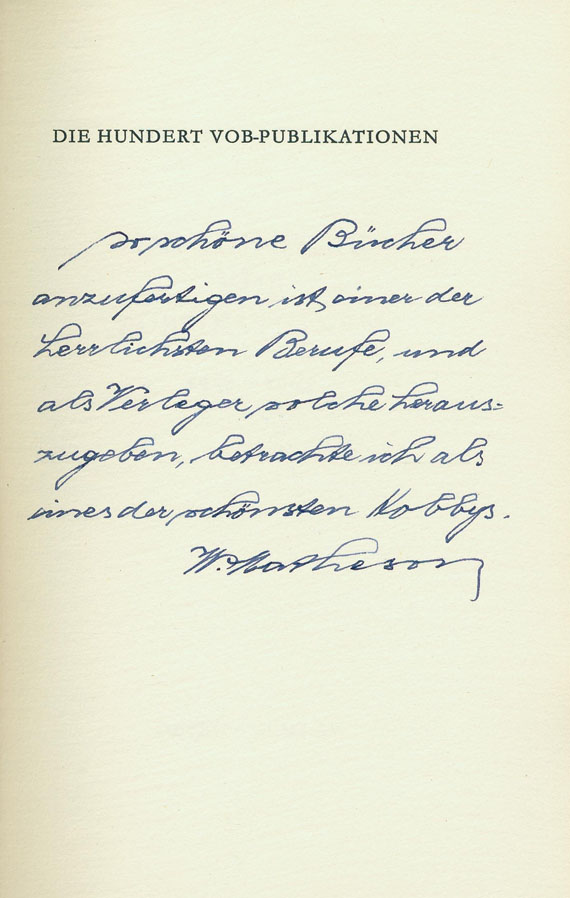 DIE HUNDERT VOB-PUBLIKATIONEN
so schöne Bücher
anzufertigen ist einer der
herrlichsten Berufe, und
als Verleger solche heraus-
zugeben, betrachte ich als
eines der schönsten Hobbys.
W. Matheson